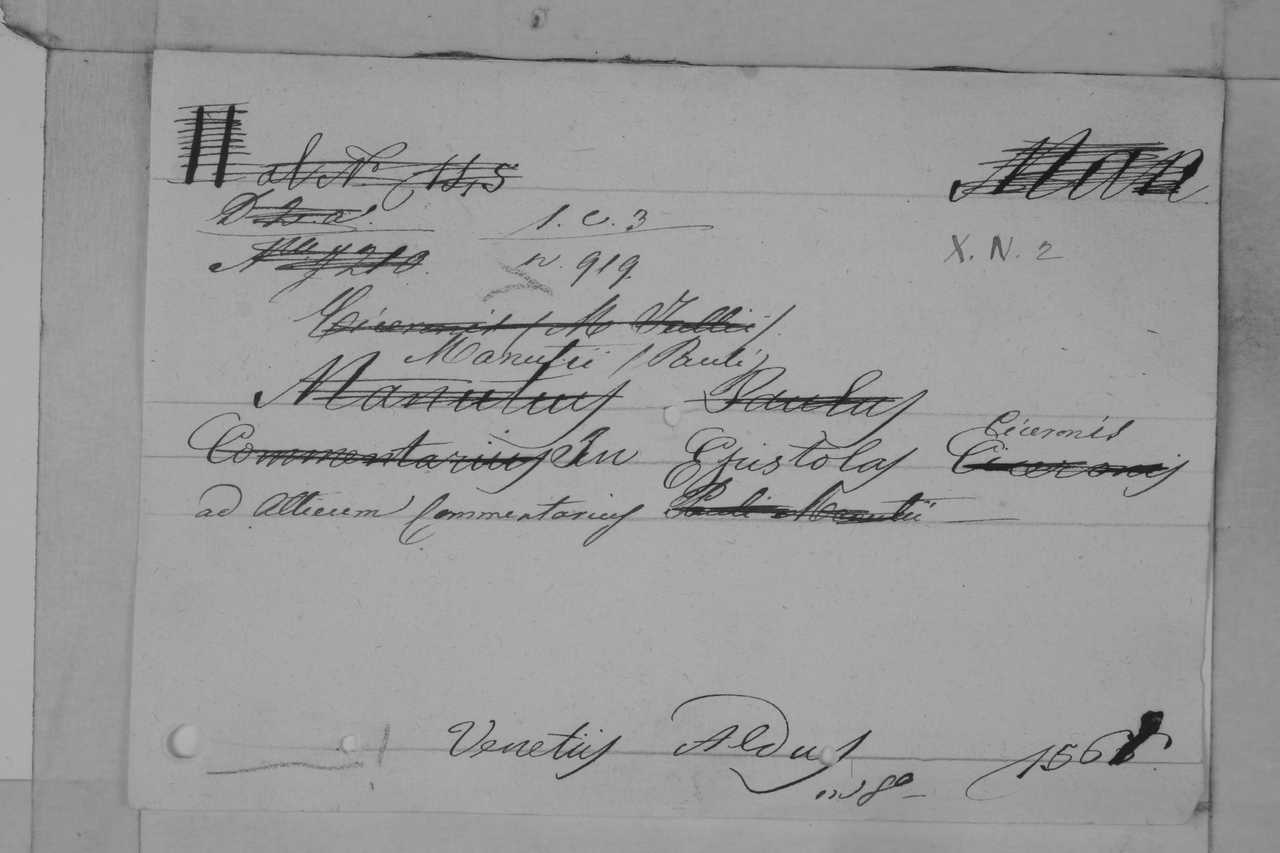 II al No 11,5 Man
1. C. 3
n. 919 X. N. 2
Ciceronis / M Tullii /
Manutii / Pauli
Manutius Paulus
Ciceronis
Commentarius In Epistolas Ciceronis
ad Atticum Commentarius Pauli Manutii
Venetiis Aldus 1568
in 8o